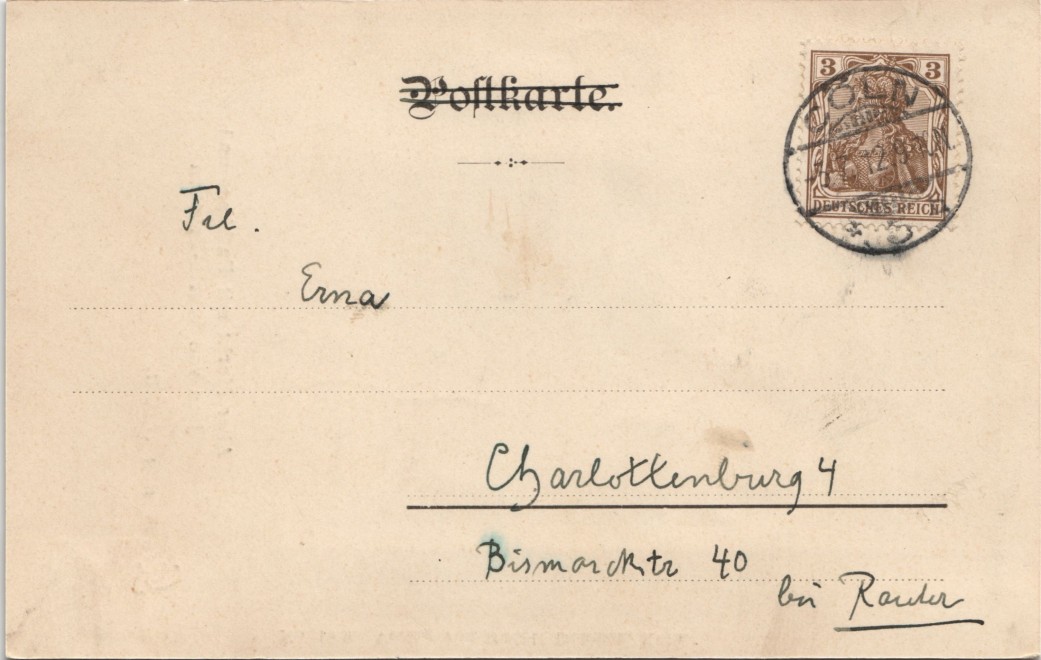 Postkarte.
3 3
CÖLN
12.8-9.N.
DEUTSCHES REICH
Frl.
Erna
Charlottenburg 4
Bismarckstr 40
bei Rauter